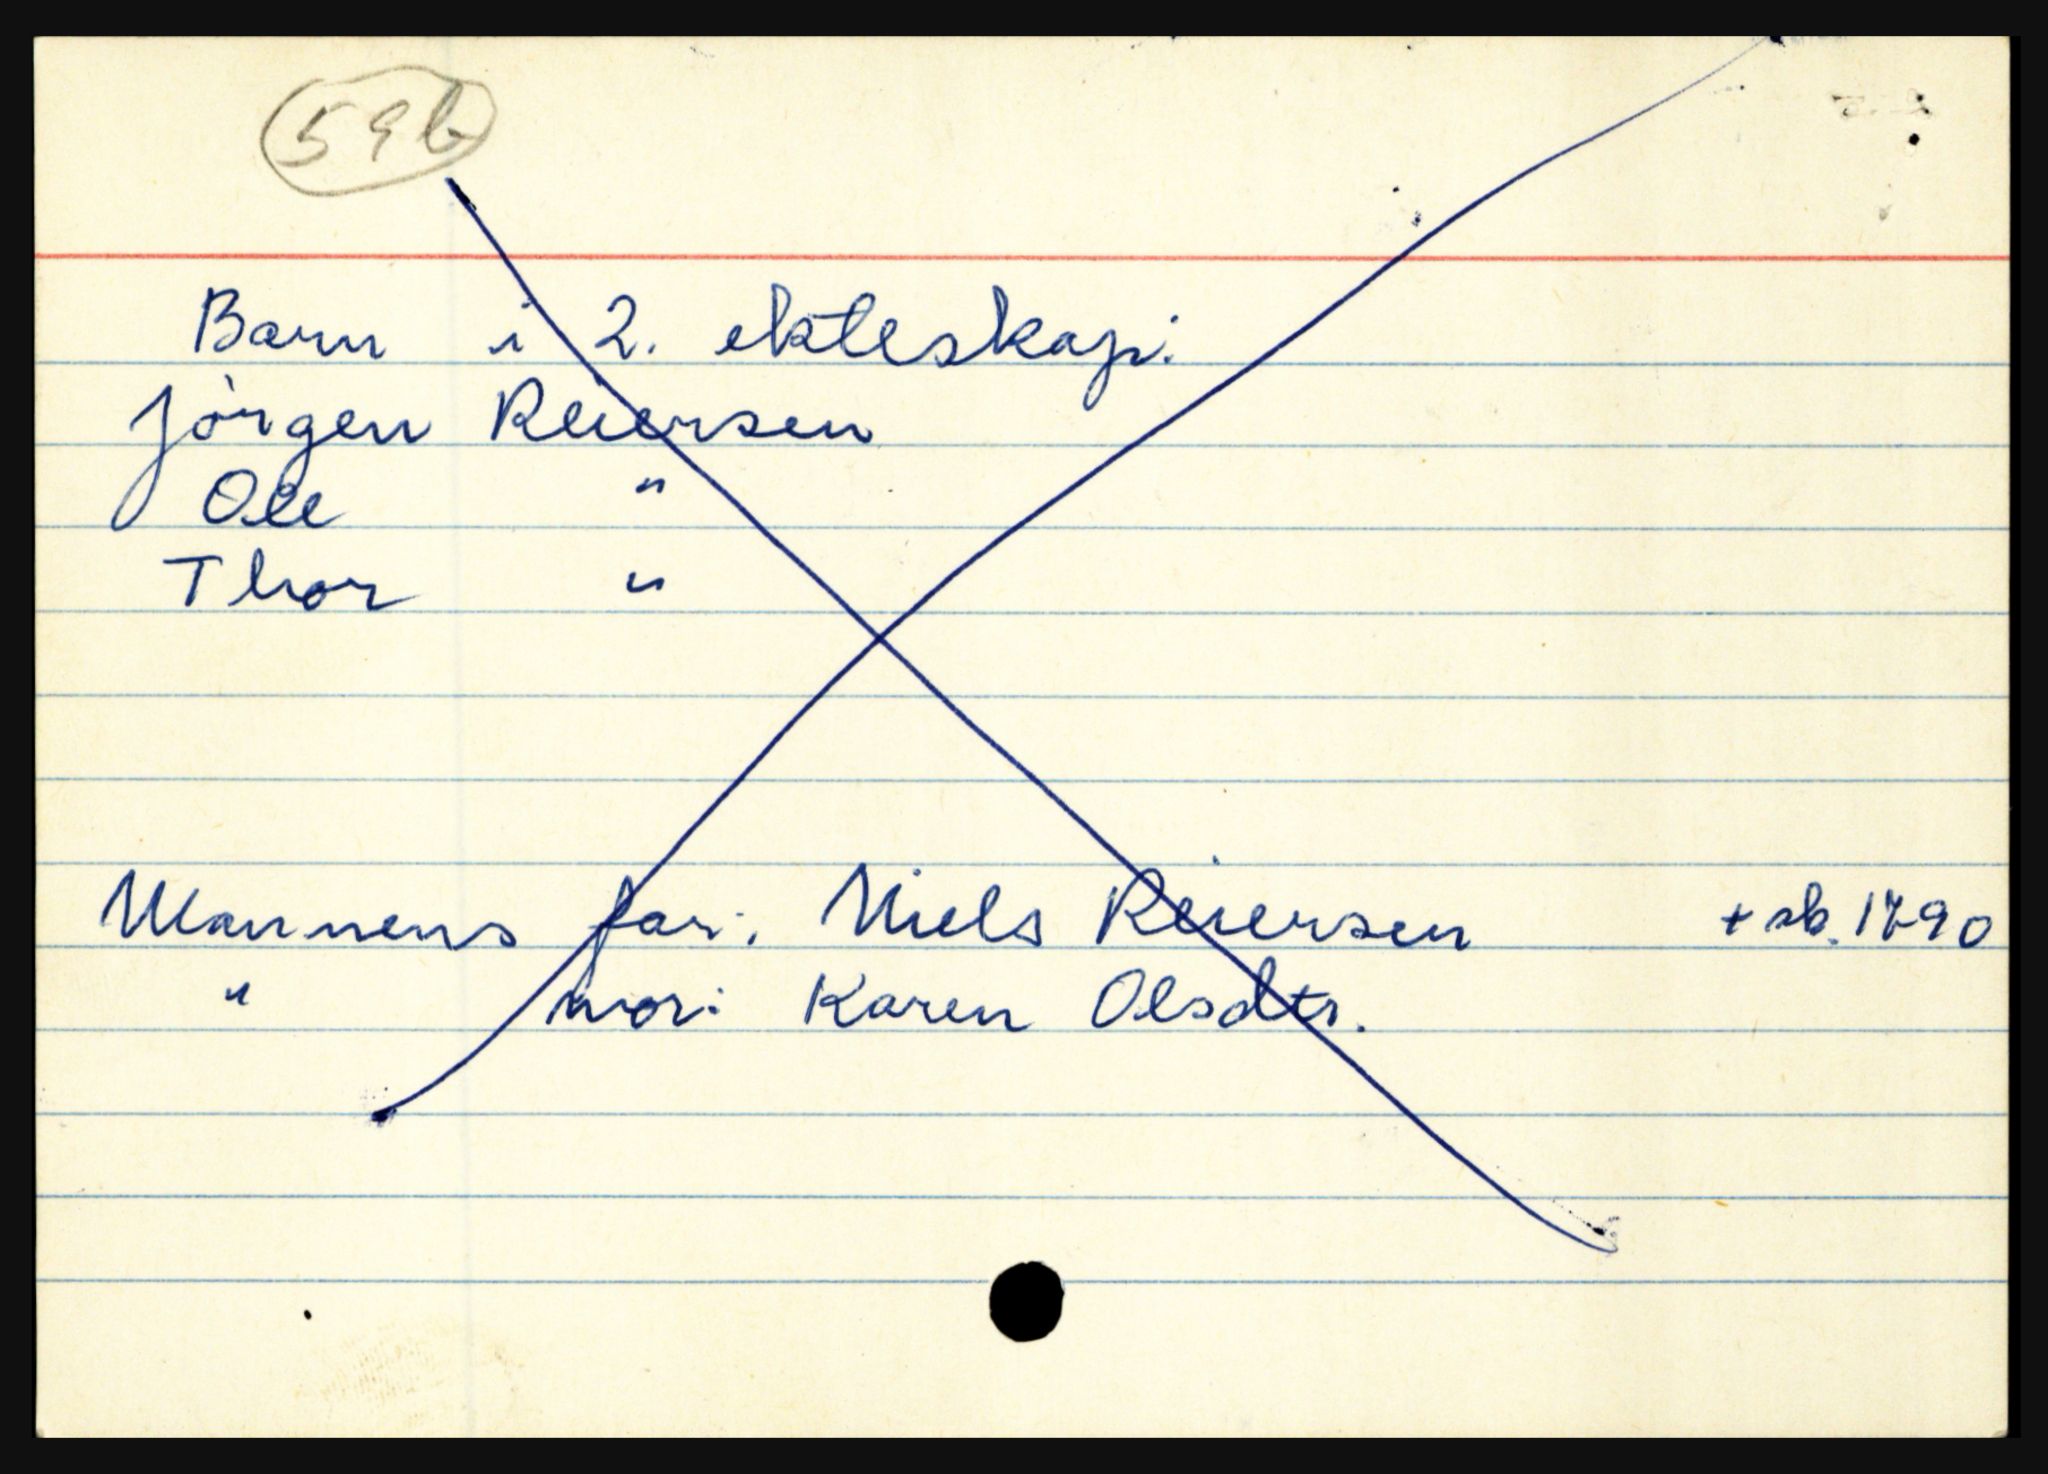 59b
Barn i 2. ekteskap:
Jörgen Reiersen
Ole "
Thor "
Mannens far: Niels Reiersen + sk. 1790
" mor: Karen Olsdtr.